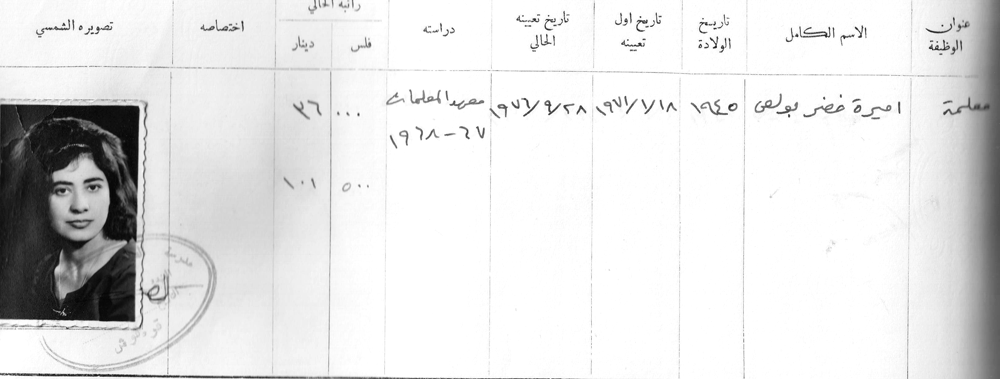 عنوان الوظيفة
الاسم الكامل
تاريخ الولادة
تاريخ اول تعيينه
تاريخ تعيينه الحالي
دراسته
راتبه الحالي
فلس
دينار
اختصاصه
تصويره الشمسي
معلمة
اميرة خضر بولص
١٩٤٥
١٩٧١/١/١٨
١٩٧٦/٩/٢٨
معهد المعلمات
٦٧ - ١٩٦٨
٠٠٠
٣٦
٥٠٠
١٠١